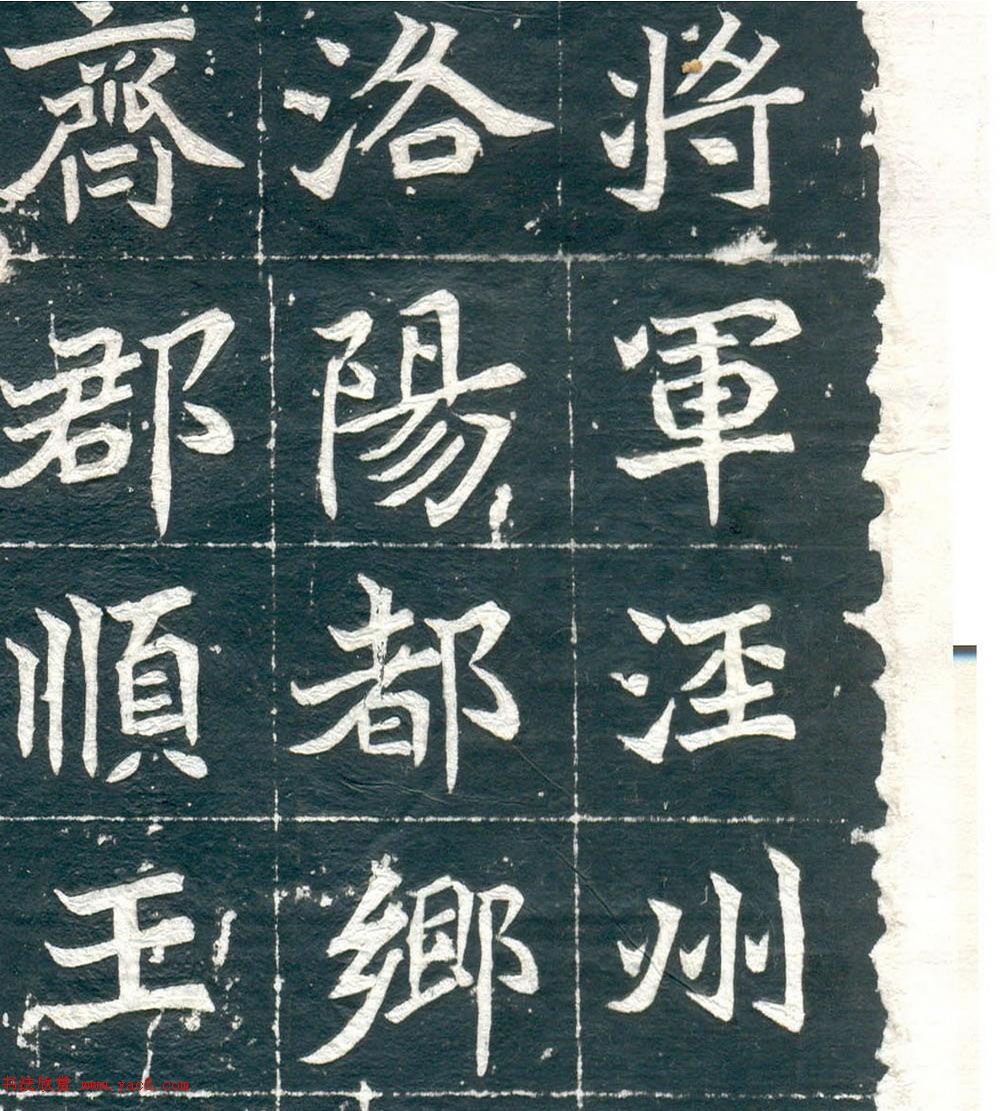 將軍涇州
洛陽都鄉
齊郡順王
书法欣赏 www.yac8.com